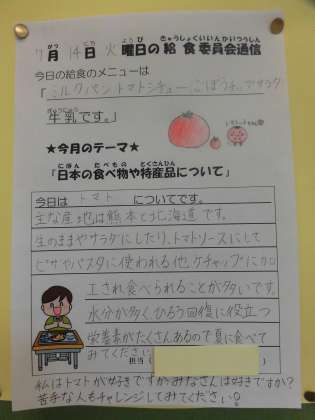 7月14日 火曜日の給食委員会通信
がつ にち ようび きゅうしょくいいんかいつうしん
今日の給食のメニューは
「ミルクパン、トマトシチュー、ごぼうチーズサラダ
牛乳です。」
ぎゅうにゅう
★今月のテーマ★
にほん たべもの とくさんひん
「日本の食べ物や特産品について」
今日は トマト についてです。
主な産地は熊本と北海道です。
生のままやサラダにしたり、トマトソースにして
ピザやパスタに使われる他、ケチャップに加
工され食べられることが多いです。
水分が多くひろう回復に役立つ
栄養素がたくさんあるので夏に食べて
みてください。
担当(
私はトマトが好きですがみなさんは好きですか?
苦手な人もチャレンジしてみてください!